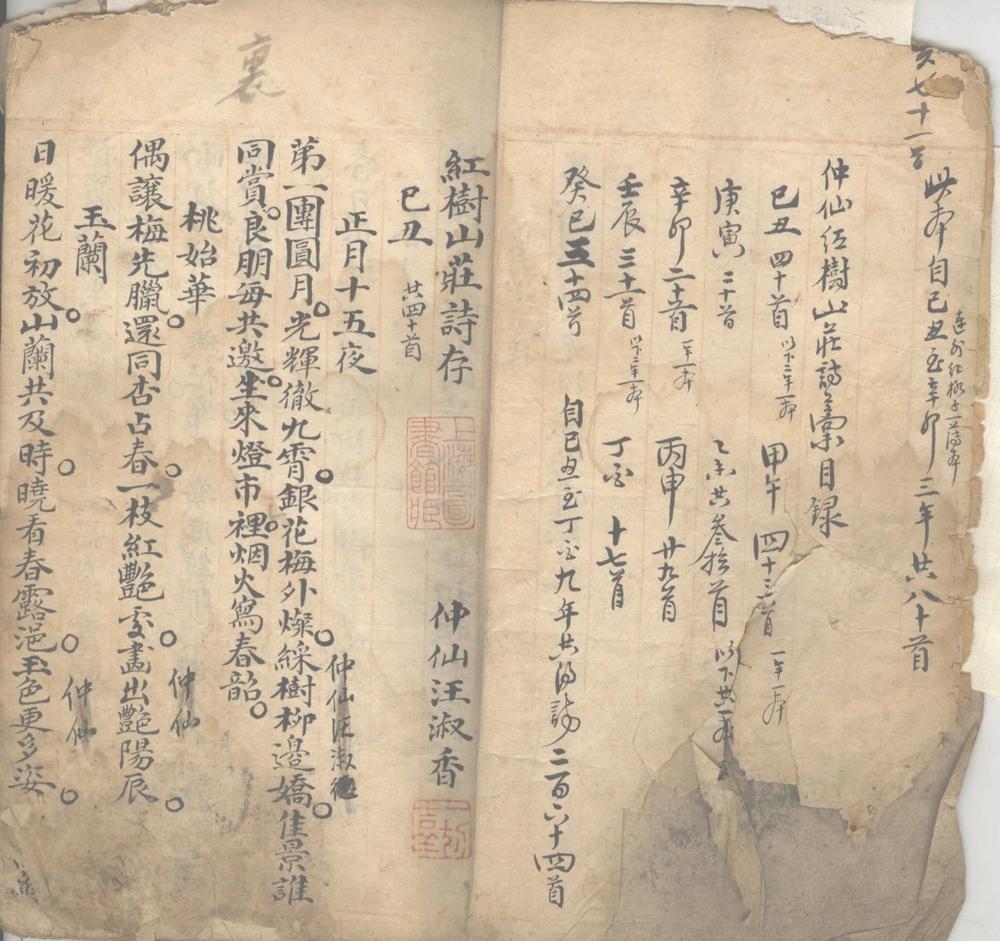 此本自己丑至辛卯三年共八十首
仲仙紅樹山莊詩稾目録
己丑四十首 以下二年一本
甲午 四十三首 一年一本
庚寅 二十首
乙未共叁拾首 以下共一本
辛卯 二十首 一年一本
丙申 廿九首
壬辰 三十一首 以下二年一本
丁酉 十七首
癸巳 三十四首
自己丑至丁酉九年共得詩二百六十四首
裏
紅樹山莊詩存 仲仙汪淑香
上海圖書館臧
己丑 共四十首
正月十五夜 仲仙汪淑
第一團圓月。光輝徹九霄。銀花梅外燦。綵樹柳邊嬌。佳景誰
同賞。良朋每共邀。生來燈市裡。烟火寫春韶。
桃始華 仲仙
偶讓梅先臘。還同杏占春。一枝紅艷處。畫出艷陽辰。
玉蘭 仲仙
日暖花初放。山蘭共及時。曉看春露浥。玉色更多姿。